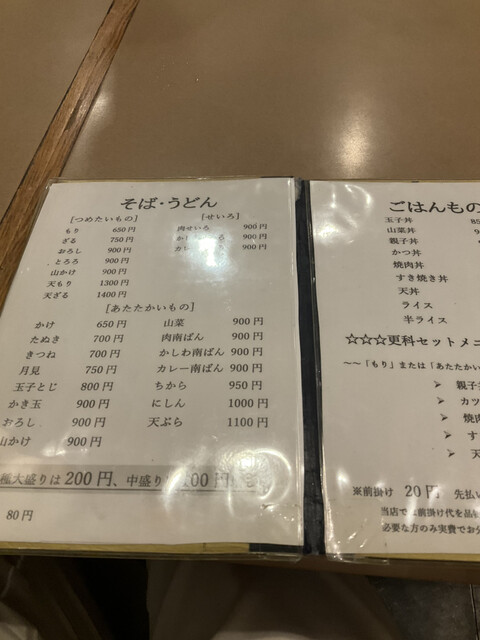 そば・うどん
[つめたいもの]
もり 650円
ざる 750円
おろし 900円
とろろ 900円
山かけ 900円
天もり 1300円
天ざる 1400円
[せいろ]
肉せいろ 900円
900円
カレー 900円
[あたたかいもの]
かけ 650円
たぬき 700円
きつね 700円
月見 750円
玉子とじ 800円
かき玉 900円
おろし 900円
山かけ 900円
山菜 900円
肉南ばん 900円
かしわ南ばん 900円
カレー南ばん 900円
ちから 950円
にしん 1000円
天ぷら 1100円
極大盛りは 200円、中盛り 100円
80円
ごはんもの
玉子丼
山菜丼
親子丼
かつ丼
焼肉丼
すき焼き丼
天丼
ライス
半ライス
☆☆☆更科セットメニ
~~「もり」または「あたたか
➢ 親子
➢ カツ
➢ 焼肉
➢ す
➢ 天
※前掛け 20円 先払い
当店では前掛け代を品
必要な方のみ実費でお分